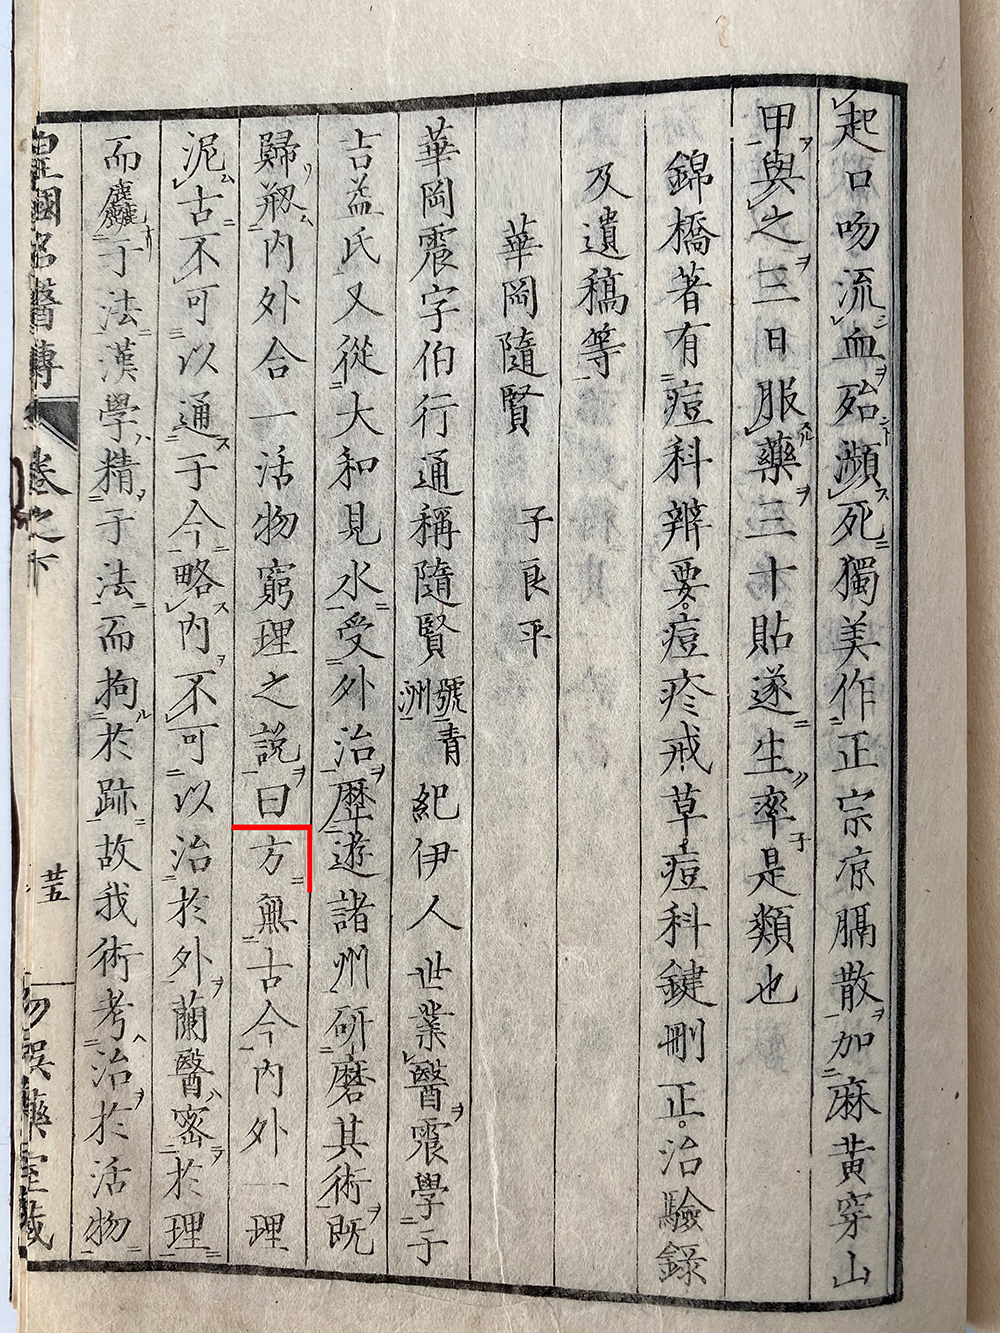 起口吻流血殆瀕死獨美作正宗凉膈散加麻黄穿山
甲與之三日服藥三十貼遂生率是類也
錦橋著有痘科辨要。痘疹戒草。痘科鍵刪正。治驗錄
及遺稿等
華岡隨賢 子良平
華岡震字伯行通稱隨賢號青洲紀伊人世業醫震學于
吉益氏又從大和見水受外治歷遊諸州研磨其術既
歸剏内外合一活物窮理之說曰方無古今内外一理
泥古不可以通于今略内不可以治於外蘭醫密於理
而麤于法漢學精于法而拘於跡故我術考治於活物
皇國名醫傳 卷之下 廿五